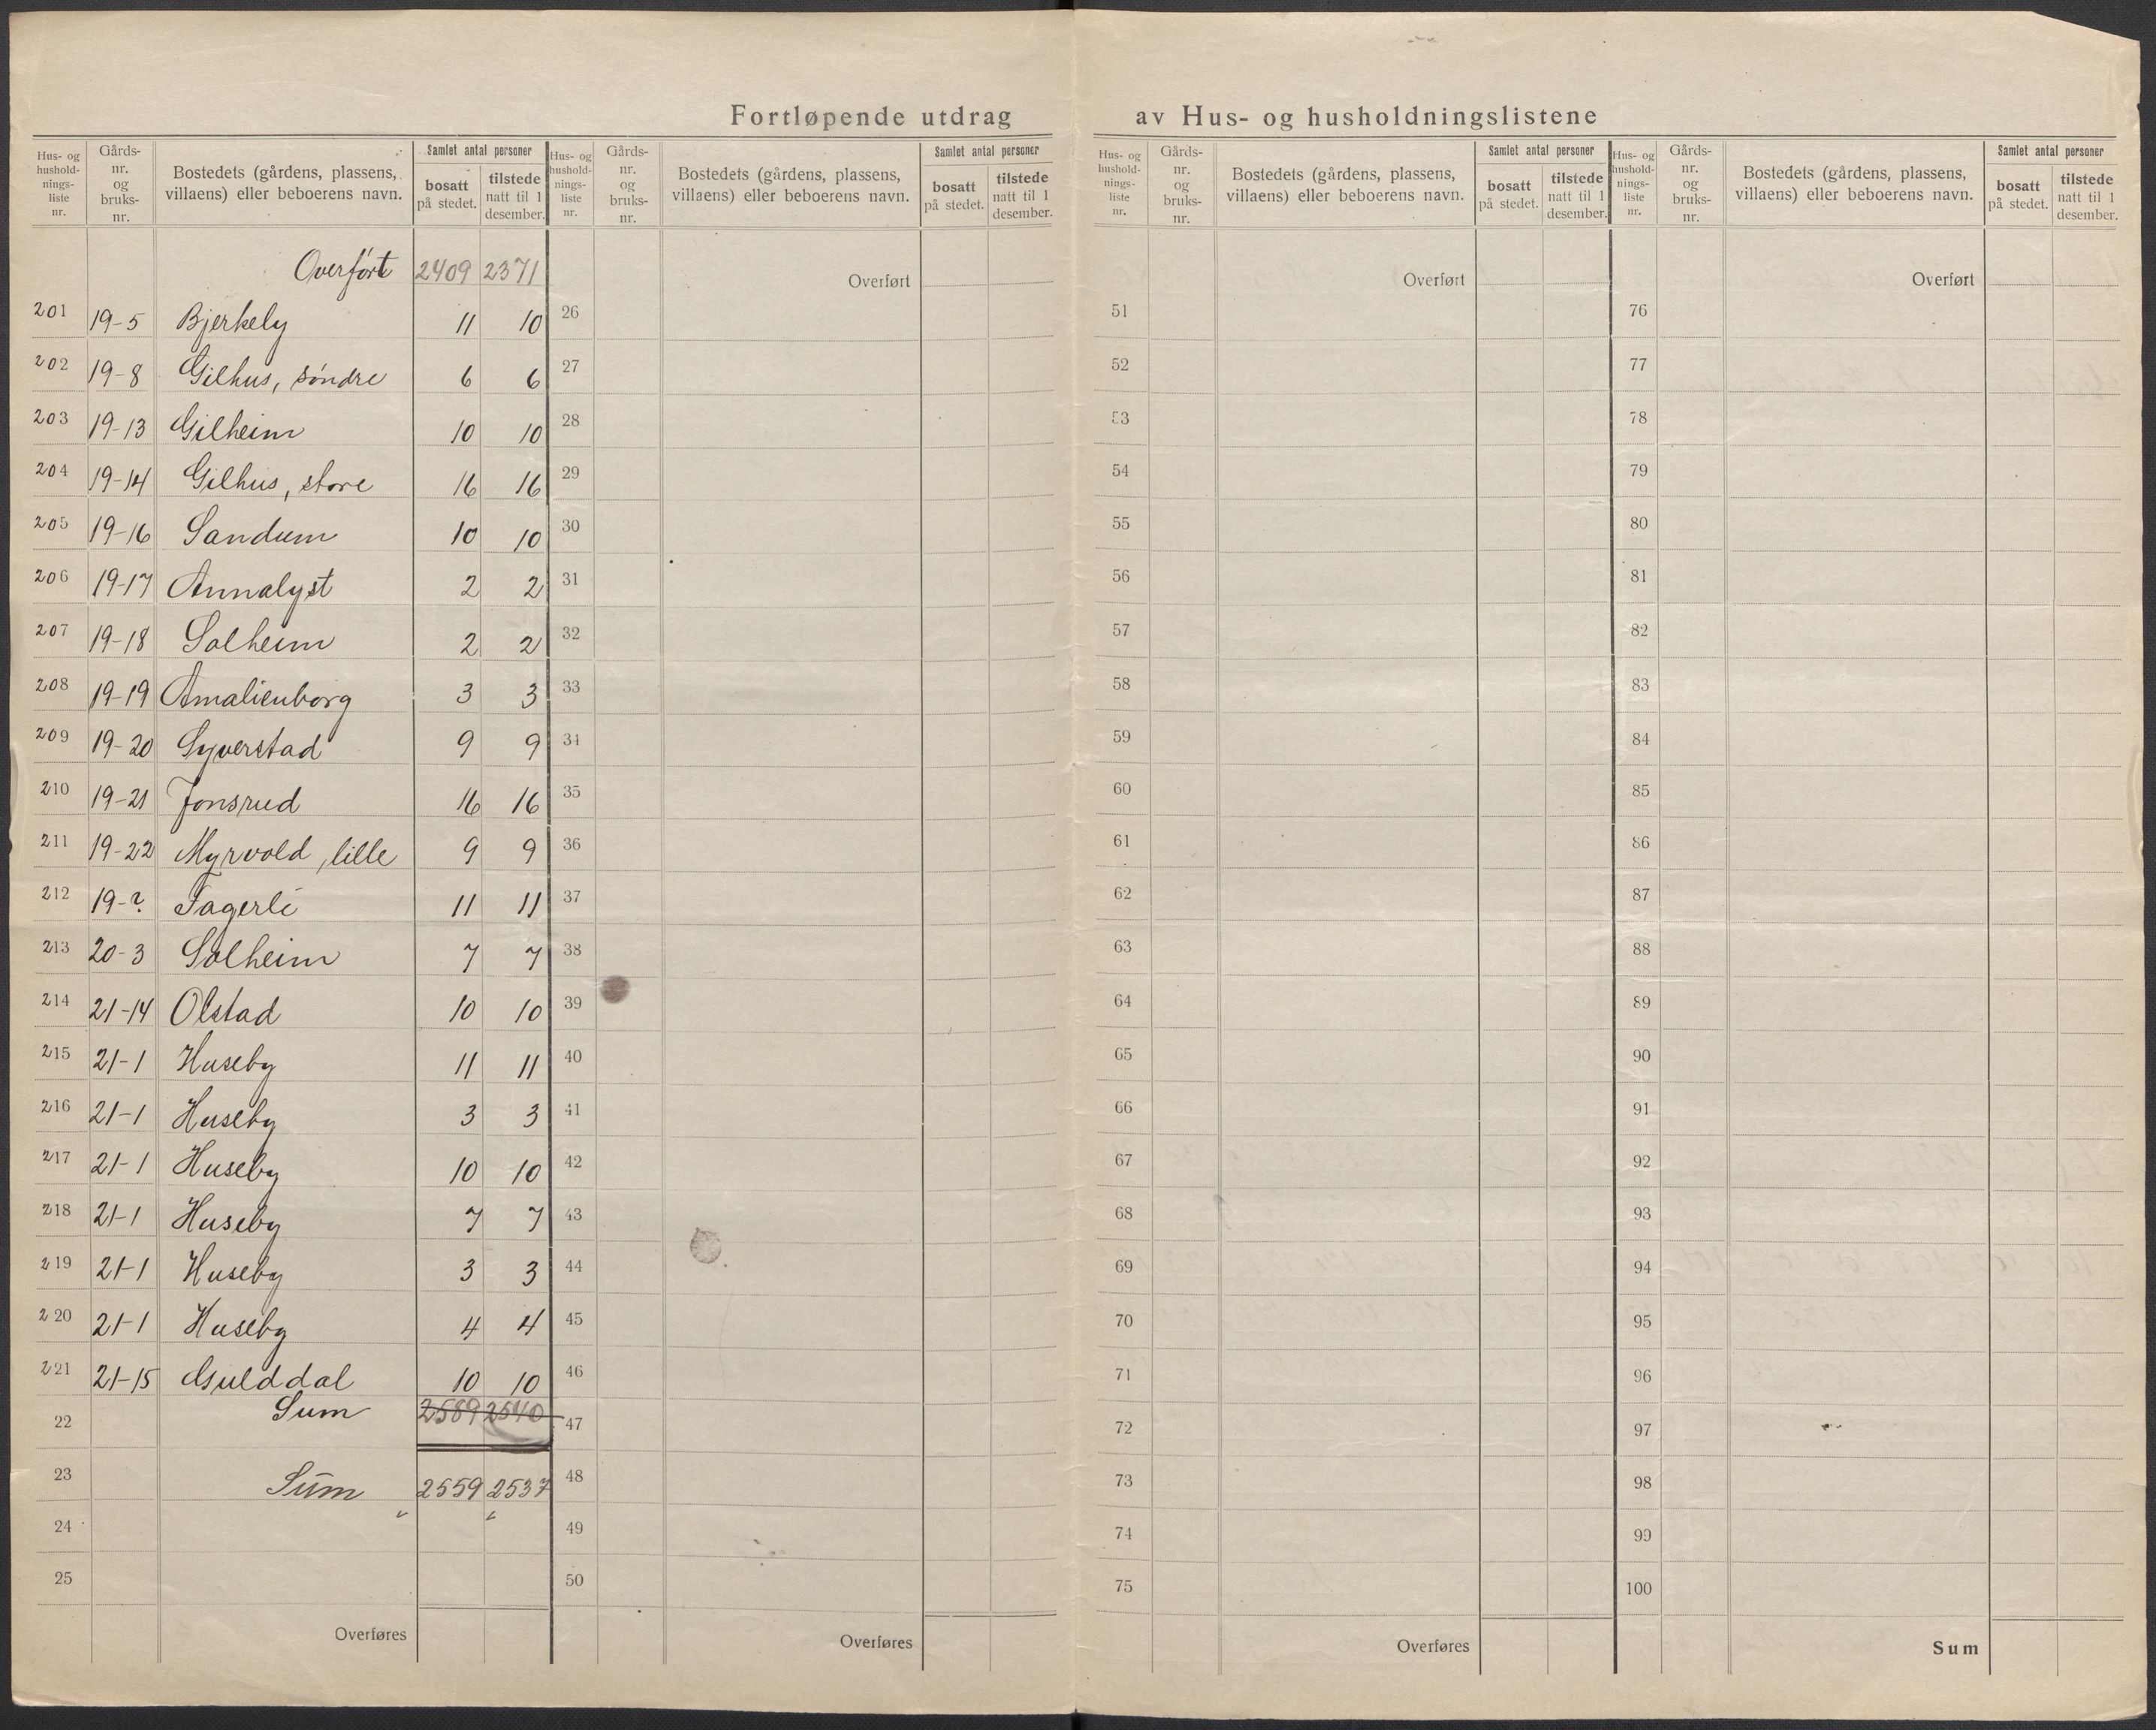 Fortløpende utdrag av Hus- og husholdningslistene
Hus- og hushold- nings- liste nr.
Gårds- nr. og bruks- nr.
Bostedets (gårdens, plassens, villaens) eller beboerens navn.
Samlet antal personer
bosatt på stedet.
tilstede natt til 1 desember.
Hus- og hushold- nings- liste nr.
Gårds- nr. og bruks- nr.
Bostedets (gårdens, plassens, villaens) eller beboerens navn.
Samlet antal personer
bosatt på stedet.
tilstede natt til 1 desember.
Hus- og hushold- nings- liste nr.
Gårds- nr. og bruks- nr.
Bostedets (gårdens, plassens, villaens) eller beboerens navn.
Samlet antal personer
bosatt på stedet.
tilstede natt til 1 desember.
Hus- og hushold- nings- liste nr.
Gårds- nr. og bruks- nr.
Bostedets (gårdens, plassens, villaens) eller beboerens navn.
Samlet antal personer
bosatt på stedet.
tilstede natt til 1 desember.
Overført 2409 2371
201 19-5 Bjerkely 11 10
202 19-8 Gilhus, søndre 6 6
203 19-13 Gilheim 10 10
204 19-14 Gilhus, store 16 16
205 19-16 Sandum 10 10
206 19-17 Annalyst 2 2
207 19-18 Solheim 2 2
208 19-19 Amalienborg 3 3
209 19-20 Syverstad 9 9
210 19-21 Jonsrud 16 16
211 19-22 Myrvold, lille 9 9
212 19-? Fagerli 11 11
213 20-3 Solheim 7 7
214 21-14 Olstad 10 10
215 21-1 Huseby 11 11
216 21-1 Huseby 3 3
217 21-1 Huseby 10 10
218 21-1 Huseby 7 7
219 21-1 Huseby 3 3
220 21-1 Huseby 4 4
221 21-15 Gulddal 10 10
22 Sum 2589 2540
23 Sum 2559 2537
24
25
Overføres
Overført
26
27
28
29
30
31
32
33
34
35
36
37
38
39
40
41
42
43
44
45
46
47
48
49
50
Overføres
Overført
51
52
53
54
55
56
57
58
59
60
61
62
63
64
65
66
67
68
69
70
71
72
73
74
75
Overføres
Overført
76
77
78
79
80
81
82
83
84
85
86
87
88
89
90
91
92
93
94
95
96
97
98
99
100
Sum